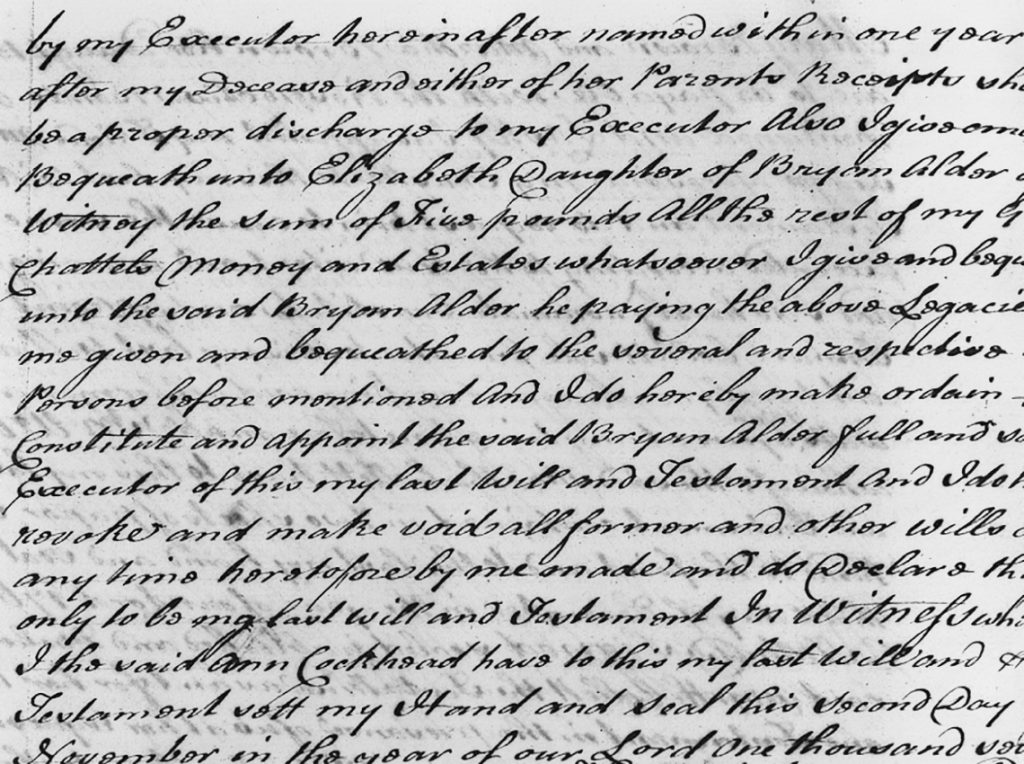 by my Executor hereinafter named within one year
after my Decease and either of her Parents Receipts sha
be a proper discharge to my Executor Also I give and
Bequeath unto Elizabeth Daughter of Bryan Alder
Witney the sum of Five pounds All the rest of my G
Chattels Money and Estates whatsoever I give and bequ
unto the said Bryan Alder he paying the above Legacie
me given and bequeathed to the several and respective
Persons before mentioned And I do hereby make ordain
Constitute and appoint the said Bryan Alder full and so
Executor of this my last Will and Testament And I do h
revoke and make void all former and other wills
any time heretofore by me made and do Declare thi
only to be my last will and Testament In Witness whe
I the said Ann Cockhead have to this my last Will and
Testament sett my Hand and Seal this second Day
November in the year of our Lord One thousand sev